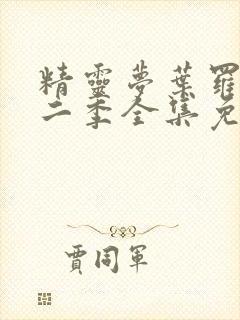 精靈夢葉羅
二季全集免
賈同軍